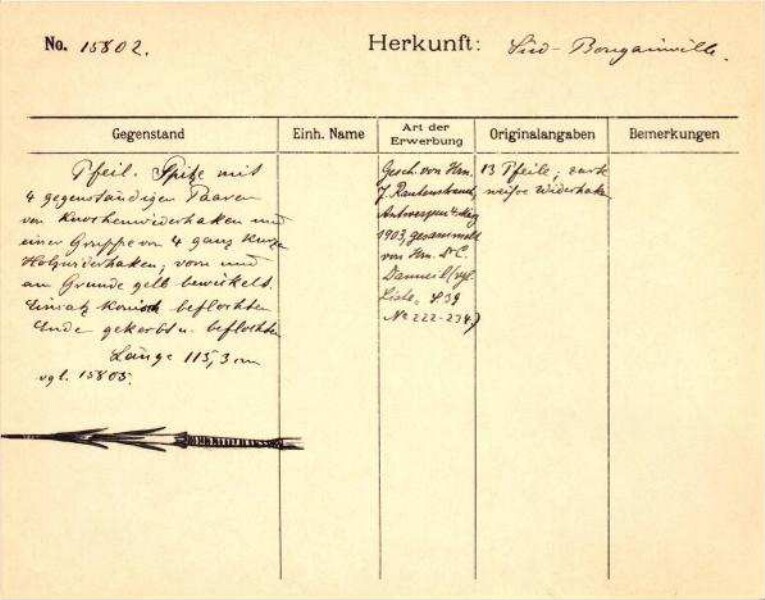 No. 15802.
Herkunft: Süd-Bougainville.
Gegenstand
Einh. Name
Art der Erwerbung
Originalangaben
Bemerkungen
Pfeil. Spitze mit
4 gegenständigen Paaren
von Knochenwiderhaken und
einer Gruppe von 4 ganz kurzen
Holzwiderhaken; vorn und
am Grunde gelb bewickelt.
Einsatz konisch beflochten
Ende gekerbt u. beflochten
Länge 115,3 cm
vgl. 15803.
Gesch. von Hrn.
J. Rautenstrauch,
Antwerpen
1903, gesammelt
von Hrn. Dr C.
Danneil (vgl.
Liste, S. 39
No 222-234.)
13 Pfeile;
Widerhaken